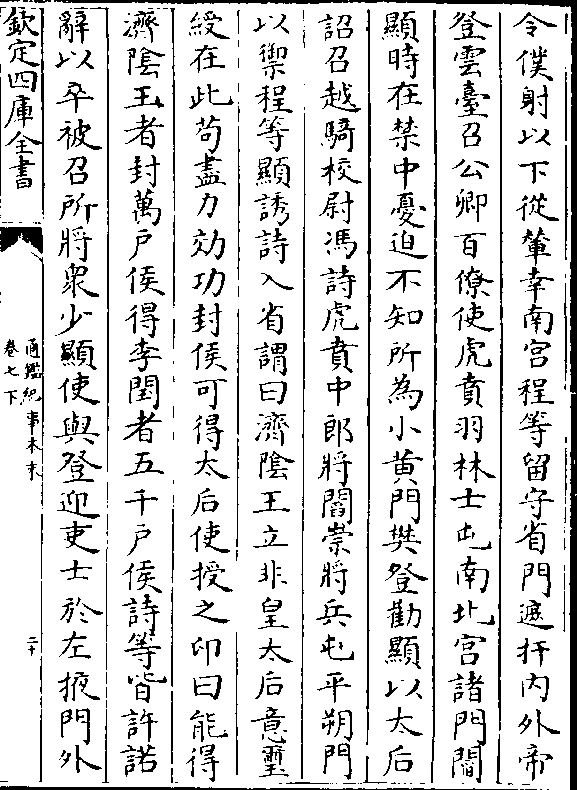 令僕射以下從輦幸南宫程等留守省門遮扞内外帝
登雲臺召公卿百僚使虎賁羽林士屯南北宫諸門閻
顯時在禁中憂迫不知所為小黄門樊登勸顯以太后
詔召越騎校尉馮詩虎賁中郎將閻崇將兵屯平朔門
以禦程等顯誘詩入省謂曰濟隂王立非皇太后意璽
綬在此苟盡力効功封侯可得太后使授之印曰能得
濟隂王者封萬户侯得李閏者五千户侯詩等皆許諾
辭以卒被召所將衆少顯使與登迎吏士於左掖門外
欽定四庫全書
通鑑紀事本末
卷七下
二十